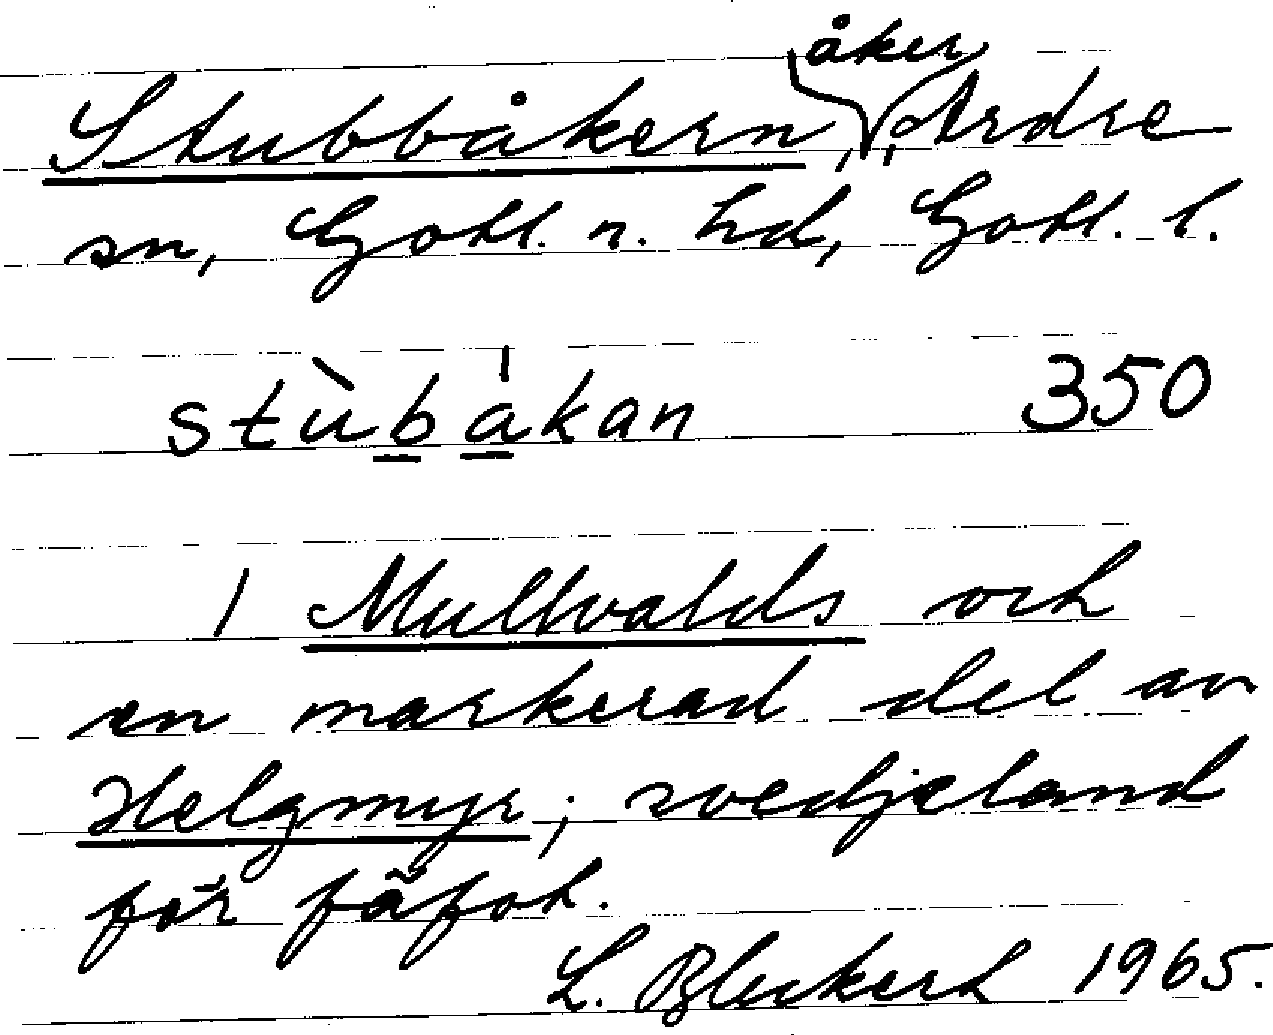 Stubbåkern, åker, Ardre
sn, Gotl. n. hd, Gotl. l.
stùb̲a̲̍kan 350
I Mullvalds och
en markerad del av
Helgmyr; svedjeland
för fäfot.
L. Bleckert 1965.